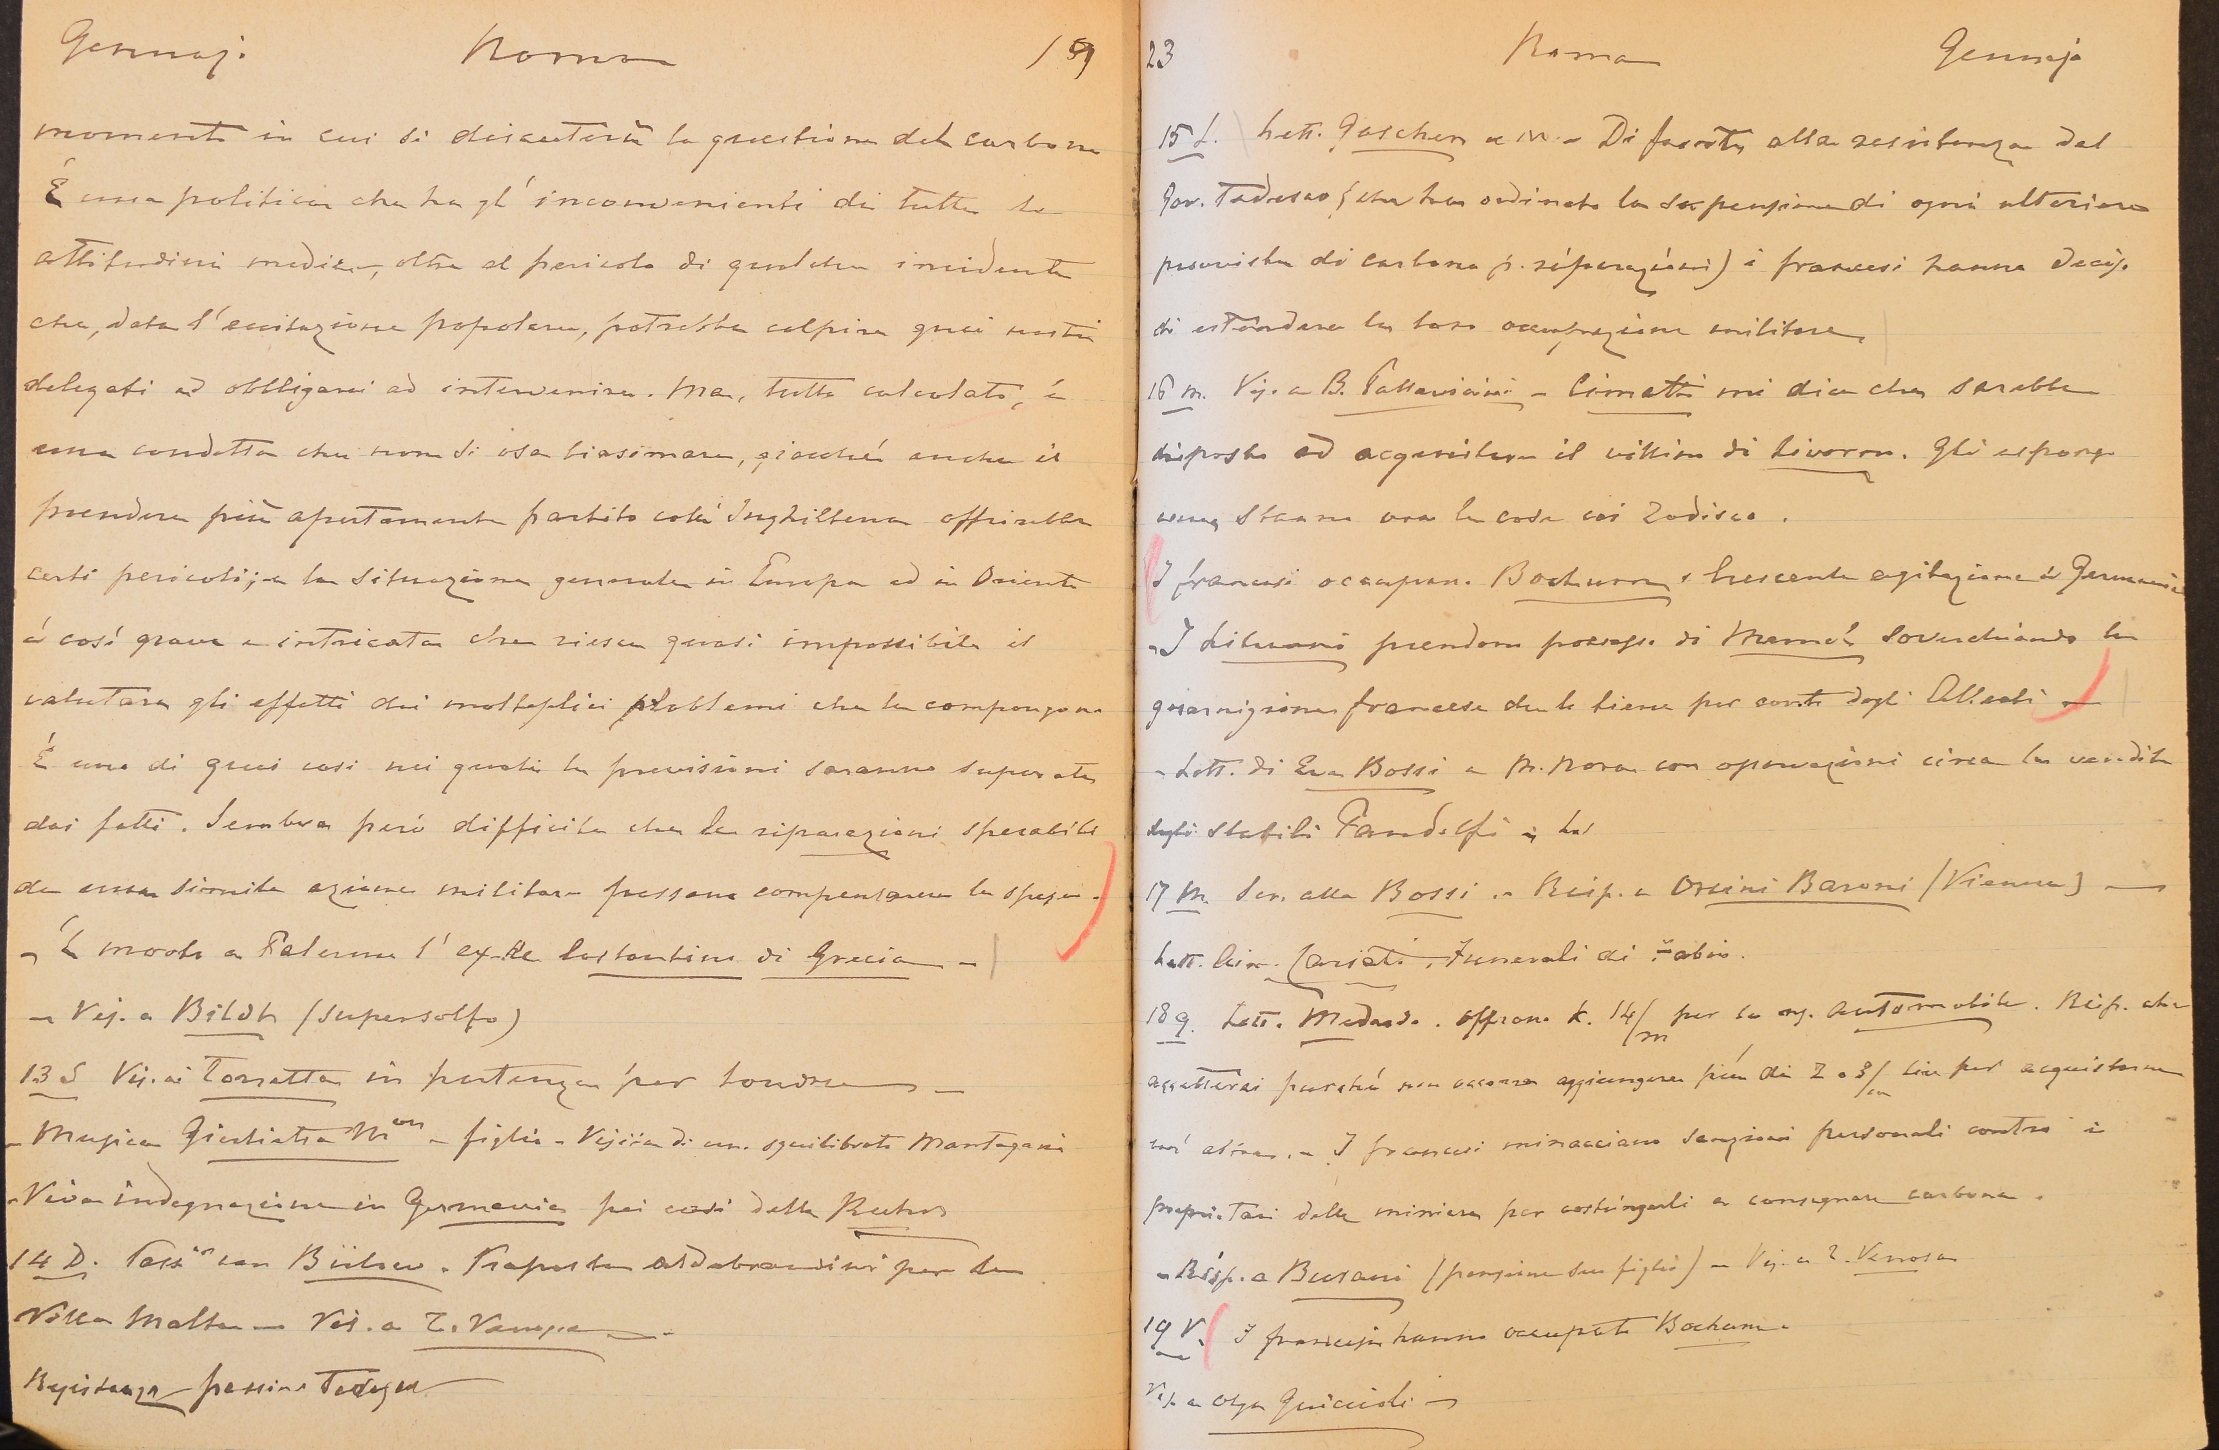 Gennajo Roma 19
momento in cui si discuterà la questione del carbone
È una politica che ha gl'inconvenienti di tutte le
attitudini medie, oltre al pericolo di qualche incidente
che, data l'eccitazione popolare, potrebbe colpire quei nostri
delegati ed obbligarci ad intervenire. Ma, tutto calcolato, è
una condotta che non si osa biasimare, giacché anche il
prendere più apertamente partito coll'Inghilterra offrirebbe
certi pericoli; e la situazione generale in Europa ed in Oriente
è così grave e intricata che riesce quasi impossibile il
valutare gli effetti dei molteplici problemi che la compongono
È uno di quei casi nei quali le previsioni saranno superate
dai fatti. Sembra però difficile che le riparazioni sperabili
da una simile azione militare possano compensarne le spese.
- È morto a Palermo l'ex-Re Costantino di Grecia -
- Vis. a Bildt (supersolfo)
13 S Vis. ai Torretta in partenza per Londra -
- Musica Giulietta M - figlio - Visita di un squilibrato Mantegani
- Viva indignazione in Germania pei casi della Ruhr
14 D. Pass con Bülow. Proposta Aldobrandini per la
Villa Malta - Vis. a Z. Venosa -
Resistenza passiva Tedesca
23 Roma Gennajo
15 L. Lett. Goschen a M. - Di fronte alla resistenza del
Gov. Tedesco (che ha ordinato la sospensione di ogni ulteriore
provvista di carbone p. riparazioni) i francesi hanno deciso
di estendere la loro occupazione militare.
16 M. Vis. a B. Pallavicini - Cimatti mi dice che sarebbe
disposto ad acquistare il villino di Livorno. Gli espongo
come stanno ora le cose coi Zodisco.
I francesi occupano Bochum. Crescente agitazione in Germania
- I Lituani prendono possesso di Memel soverchiando la
guarnigione francese che lo tiene per conto degli Alleati -
- Lett. di Eva Bossi a M. Nora con operazioni circa la vendita
degli stabili Pandolfi a
17 M. Scr. alla Bossi. - Risp. a Orsini Baroni (Vienna) -
Lett. Cariati. Funerali di Fabio.
18 G. Lett. Medardo. Offrono K. 14/m per la mj. automobile. Risp. che
accetterei purché non occorra aggiungere più di 2 o 3/m lire per acquistarne
un'altra. - I francesi minacciano sanzioni personali contro i
proprietari delle miniere per costringerli a consegnare carbone.
- Risp. a Busani (pensione suo figlio) - Vis. a Z. Venosa
19 V. I francesi hanno occupato Bochum.
Vis. a Olga Guiccioli -